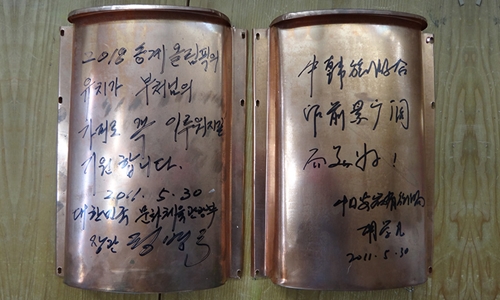 2018 동계 올림픽의
유치가 부처님의
가피로 꼭 이루워지길
기원합니다.
2011. 5. 30
대한민국 문화체육관광부
장관
中韩旅游合
作前景广阔
而美好！
2011.5.30